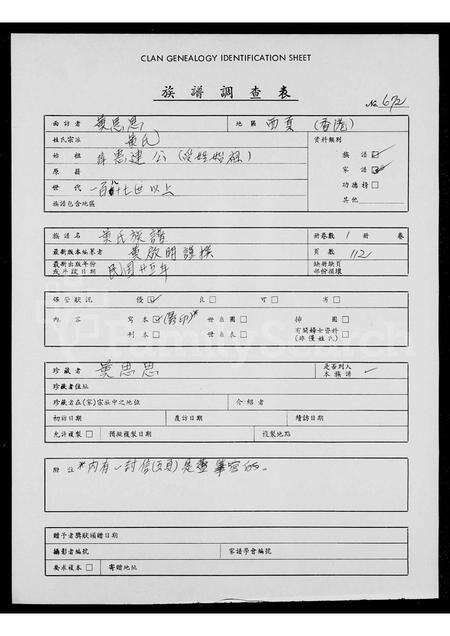 CLAN GENEALOGY IDENTIFICATION SHEET
族譜調查表
No 672
面訪者 黃思思 地區 西夏 (香港)
姓氏宗派 黃氏 資料類別
始祖 憲建公 族譜 ☑
原籍 家譜 ☑
世代 以上 功德榜 ☐
族譜包含地區 其他
族譜名 黃氏族譜 冊卷數 1 冊 卷
最新版本編纂者 黃啟明謹撰 頁數 112
最新出版年份 或手段日期 民国廿三年 缺冊缺頁 部份損壞
保存狀況 優 ☑ 良 ☐ 可 ☐ 劣 ☐
內容 寫本 ☑ (影印)* 世系圖 ☐ 插圖 ☐
刊本 ☐ 世系表 ☐ 有關婦女資料 (非僅姓氏) ☐
珍藏者 黃思思 是否別人 本族譜 ✓
珍藏者住址
珍藏者在(家)宗族中之地位 介紹者
初訪日期 度訪日期 續訪日期
允許複製 ☐ 預擬複製日期 複製地點
附注 *內有一封信(頁)是 筆寫的。
贈予者獎狀頒贈日期
攝影者編號 家譜學會編號
要求複本 ☐ 寄贈地址
FamilySearch